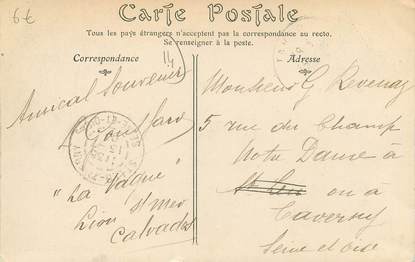 6€
Carte Postale
Tous les pays étrangers n'acceptent pas la correspondance au recto.
Se renseigner à la poste.
Correspondance
Adresse
14
Amical Souvenir
"La Vague"
Lion s/mer
Calvados
Monsieur G
5 rue du Champ
Notre Dame à
ou à
Taverny
Seine et Oise